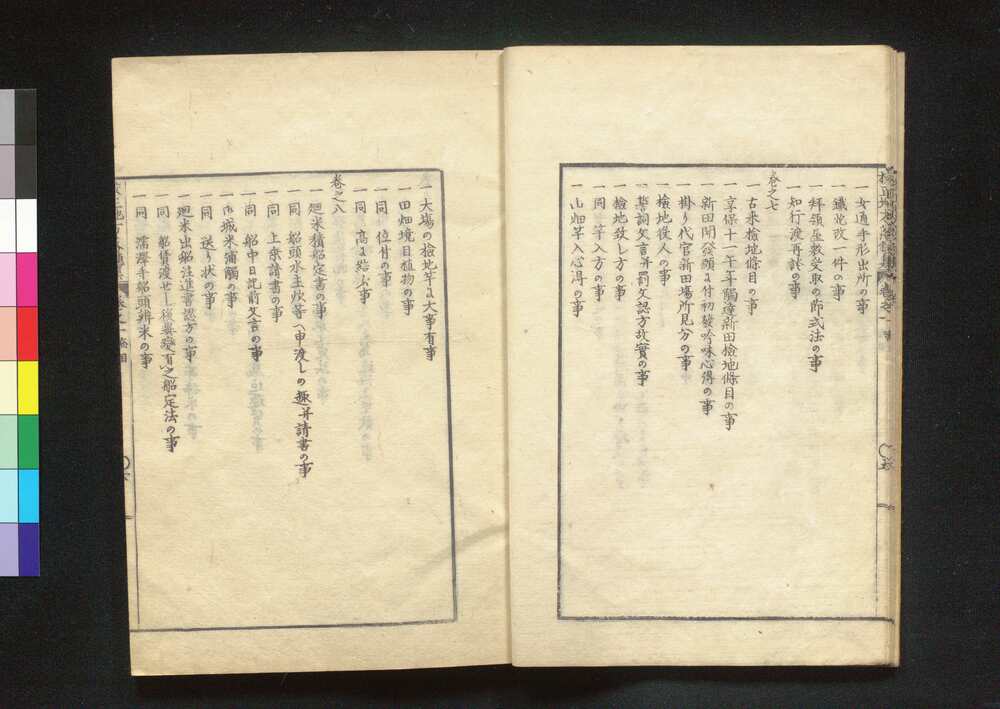 一 女通手形出所の事
一 鐵炮改一件の事
一 拜領屋敷受取の節式法の事
一 知行渡再訴の事
巻之七
一 古来檢地條目の事
一 享保十一午年觸達新田檢地條目の事
一 新田開發願に付初發吟味心得の事
一 掛り代官新田場所見分の事
一 檢地役人の事
一 誓詞文言并罰文認方故實の事
一 檢地致し方の事
一 同 竿入方の事
一 山畑竿入心得の事
一 大塲の檢地竿に大事有事
一 田畑境目植物の事
一 同 位付の事
一 同 高に結ふ事
巻之八
一 廻米積船定書の事
一 同 船頭水主炊等へ申渡しの趣并請書の事
一 同 上乘請書の事
一 同 船中日記前文言の事
一 城米浦觸の事
一 同 送り状の事
一 廻米出船注進書認方の事
一 同 船賃渡せし後異變有之船定法の事
一 同 濡澤手船頭辨米の事